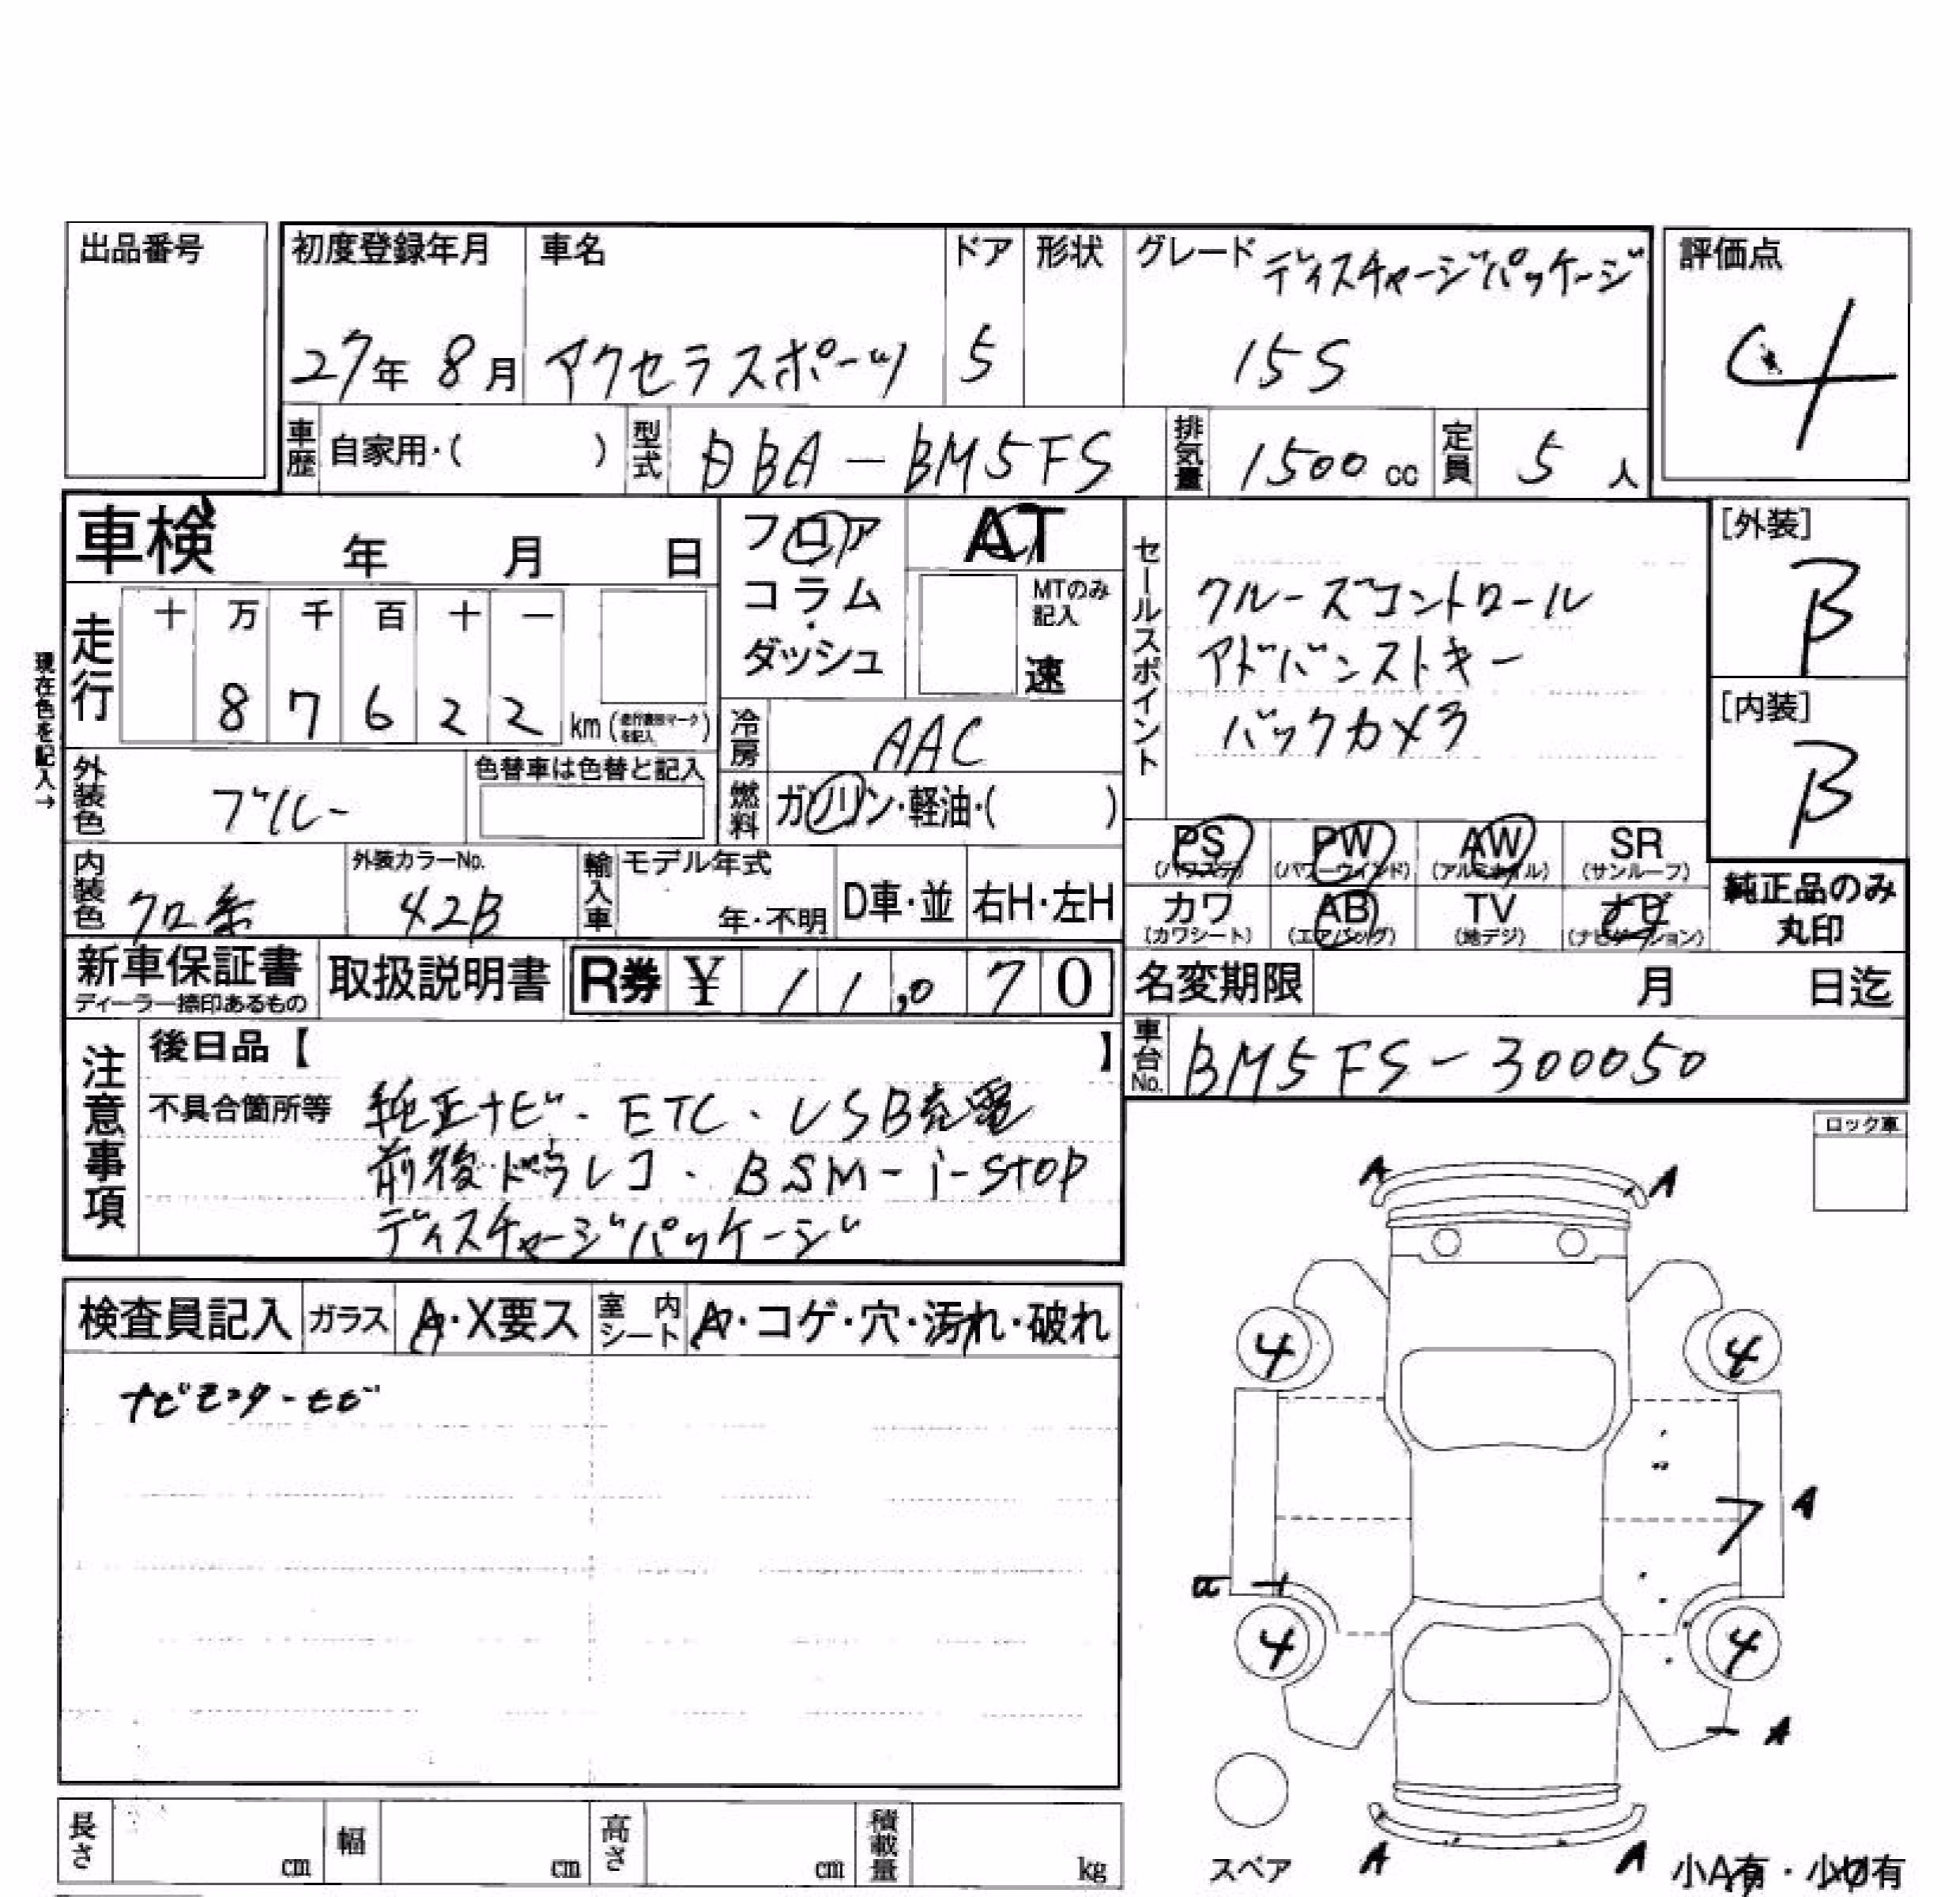 出品番号
初度登録年月 車名 ドア 形状 グレード ディスチャージパッケージ 評価点
27年 8月 アクセラスポーツ 5 15S 4
車歴 自家用・( ) 型式 DBA-BM5FS 排気量 1500cc 定員 5人
車検 年 月 日
フロア
コラム・
ダッシュ
AT
MTのみ記入
速
セールスポイント
クルーズコントロール
アドバンストキー
バックカメラ
[外装]
B
[内装]
B
現在色を記入→
走行 十 万 千 百 十 一
8 7 6 2 2 km
冷房 AAC
外装色 ブルー 色替車は色替と記入
燃料 ガソリン・軽油・( )
PS PW AW SR
(パワステ) (パワーウインド) (アルミホイル) (サンルーフ)
カワ AB TV ナビ
(カワシート) (エアバッグ) (地デジ) (ナビゲーション)
純正品のみ
丸印
内装色 クロ系 外装カラーNo. 42B 輸入車 モデル年式 年・不明 D車・並 右H・左H
新車保証書 取扱説明書 R券 ¥ 11,070
ディーラー捺印あるもの
名変期限 月 日迄
車台No. BM5FS-300050
注意事項
後日品【 】
不具合箇所等 純正ナビ・ETC・USB充電
前後ドラレコ・BSM-i-stop
ディスチャージパッケージ
ロック車
検査員記入 ガラス A・X要ス 室内シート A・コゲ・穴・汚れ・破れ
ナビモニターセビ
A A
4 4
ア A
4 4
A
スペア A A 小A有・小U有
長さ cm 幅 cm 高さ cm 積載量 kg